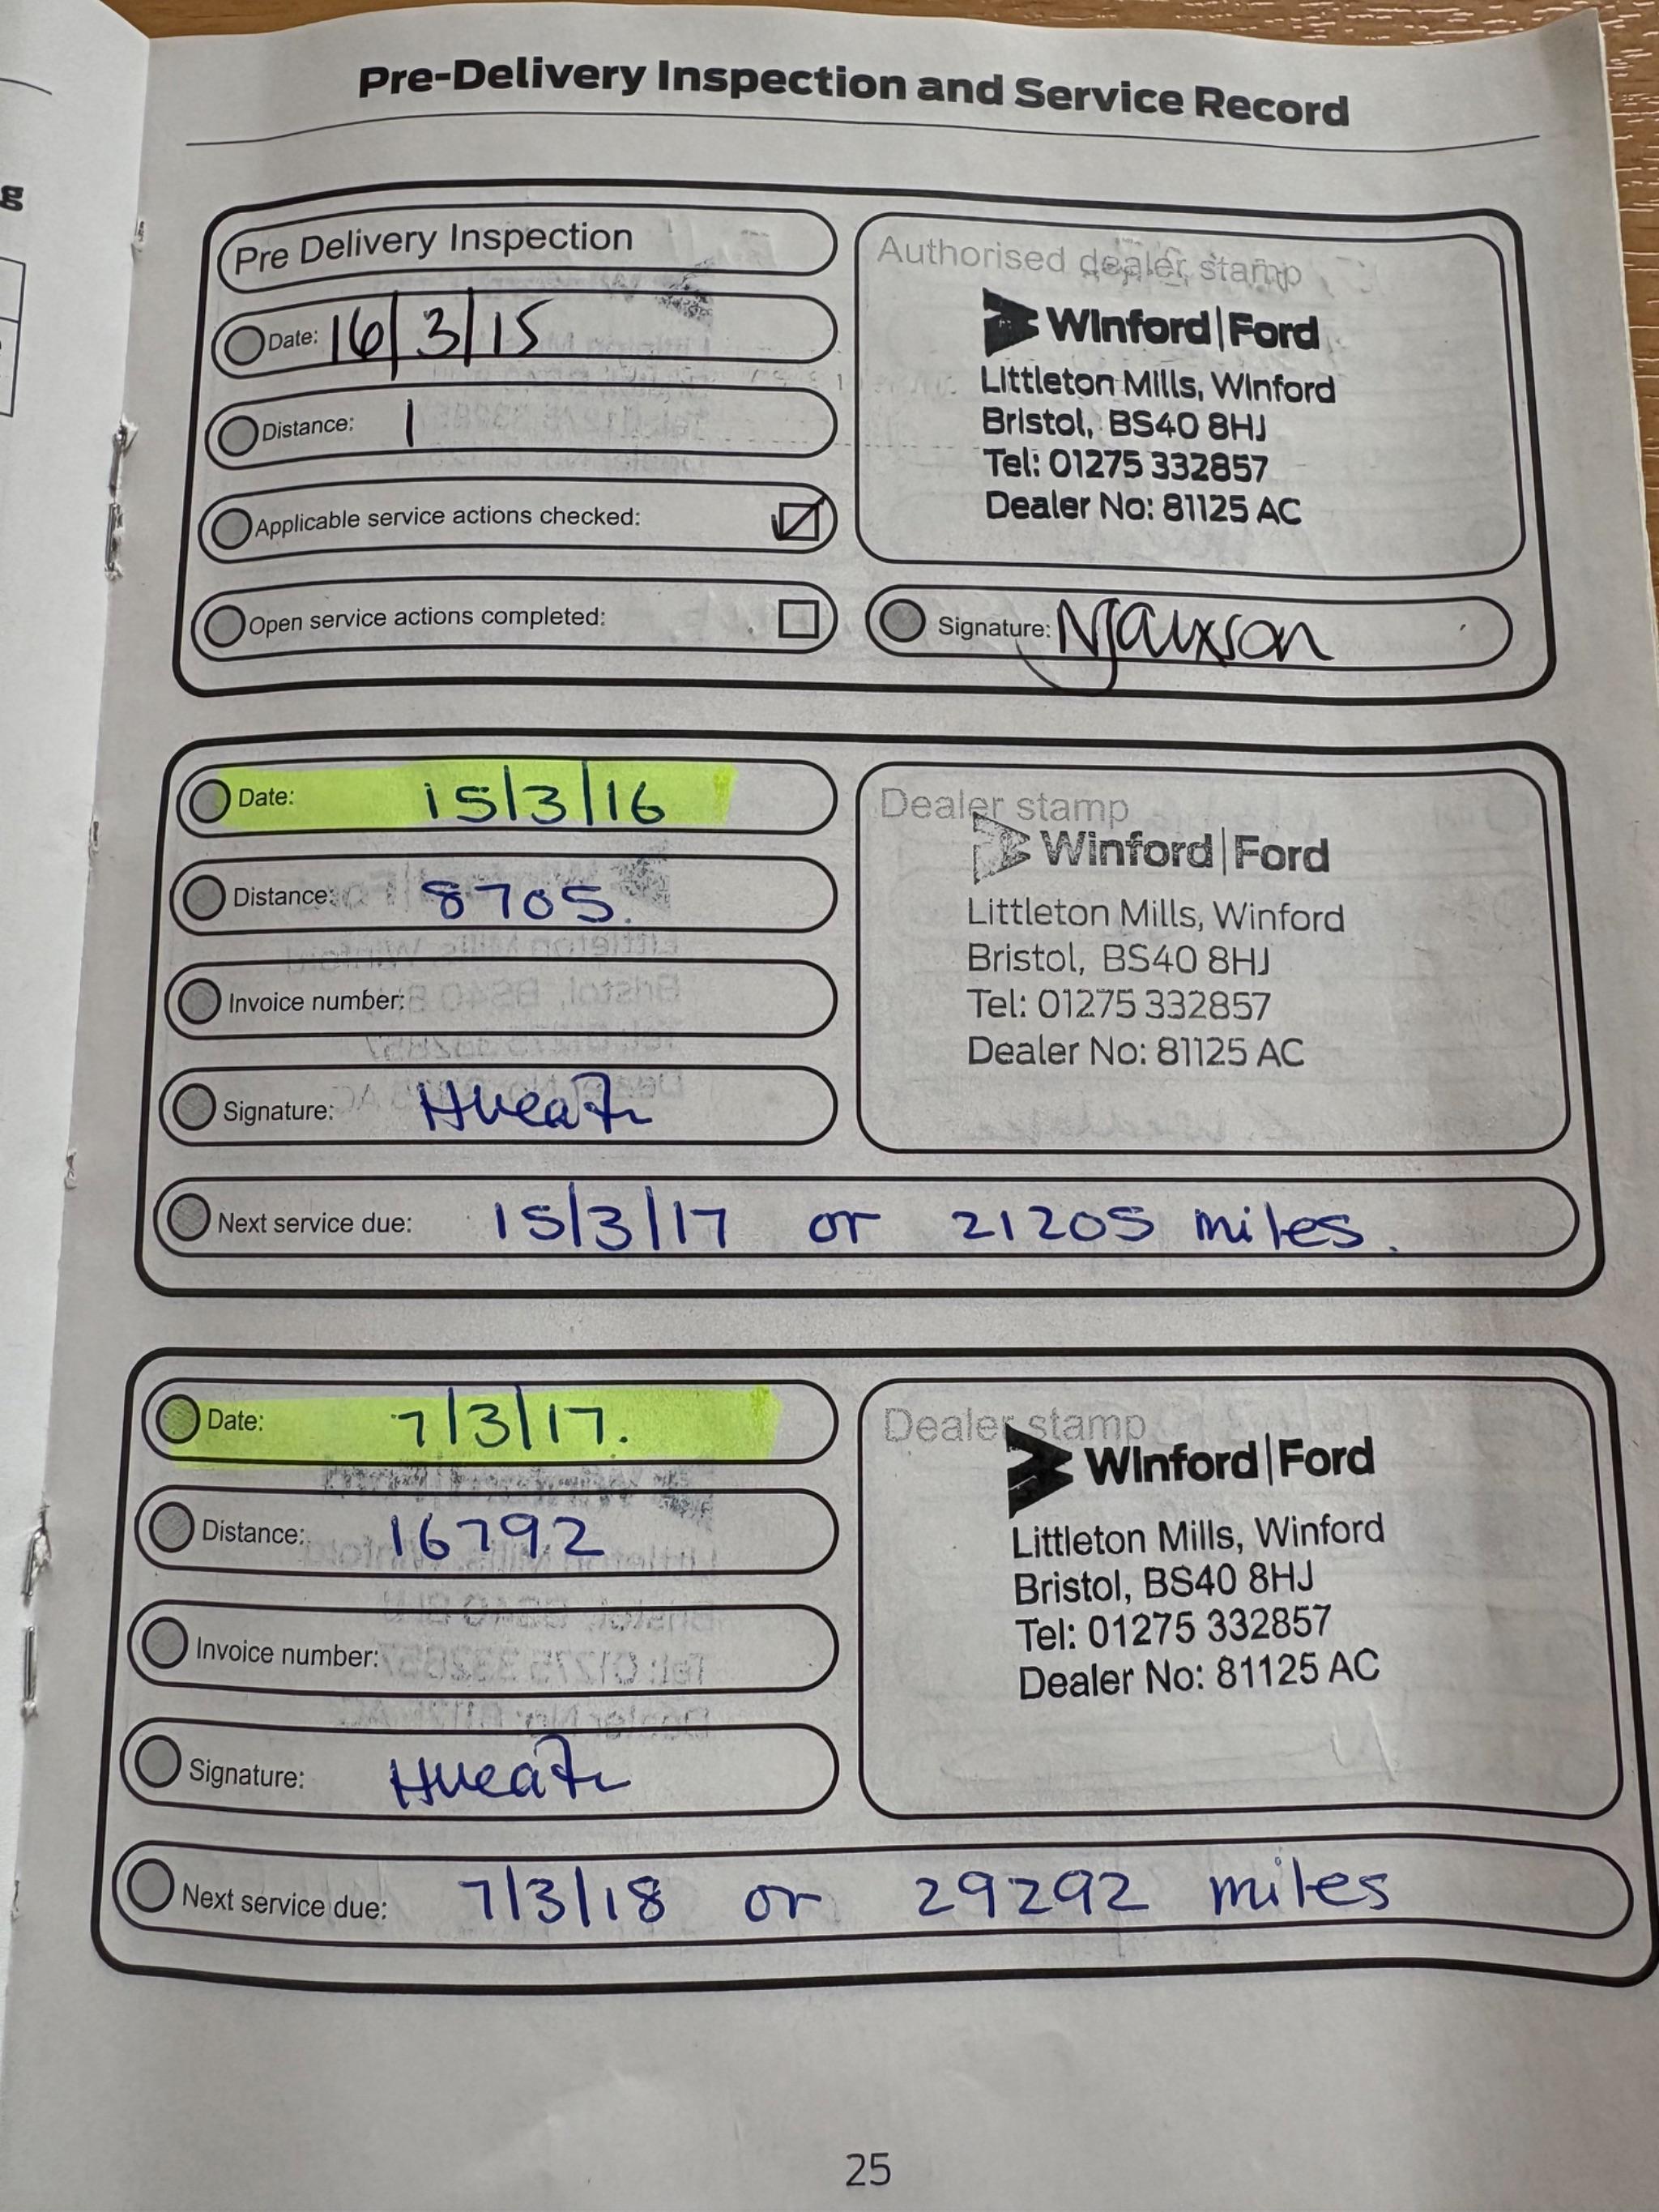 g
Pre-Delivery Inspection and Service Record
Pre Delivery Inspection
Date: 16/3/15
Distance: 1
Applicable service actions checked:
Open service actions completed:
Authorised dealer stamp
Winford|Ford
Littleton Mills, Winford
Bristol, BS40 8HJ
Tel: 01275 332857
Dealer No: 81125 AC
Signature:
Date: 15/3/16
Distance: 8705.
Invoice number:
Signature:
Dealer stamp
Winford|Ford
Littleton Mills, Winford
Bristol, BS40 8HJ
Tel: 01275 332857
Dealer No: 81125 AC
Next service due: 15/3/17 or 21205 miles.
Date: 7/3/17.
Distance: 16792
Invoice number:
Signature:
Dealer stamp
Winford|Ford
Littleton Mills, Winford
Bristol, BS40 8HJ
Tel: 01275 332857
Dealer No: 81125 AC
Next service due: 7/3/18 or 29292 miles
25